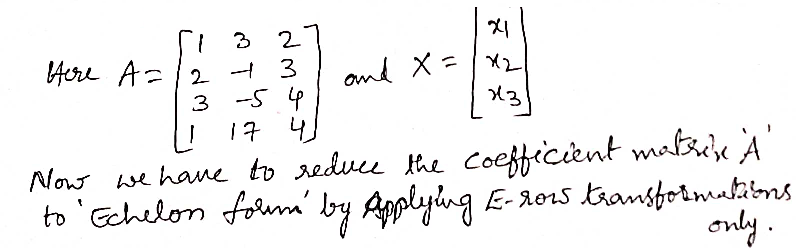 Here A = [1 3 2
2 -1 3
3 -5 4
1 17 4] and X = [x1
x2
x3]
Now we have to reduce the coefficient matrix 'A'
to 'Echelon form' by Applying E-row transformations
only.